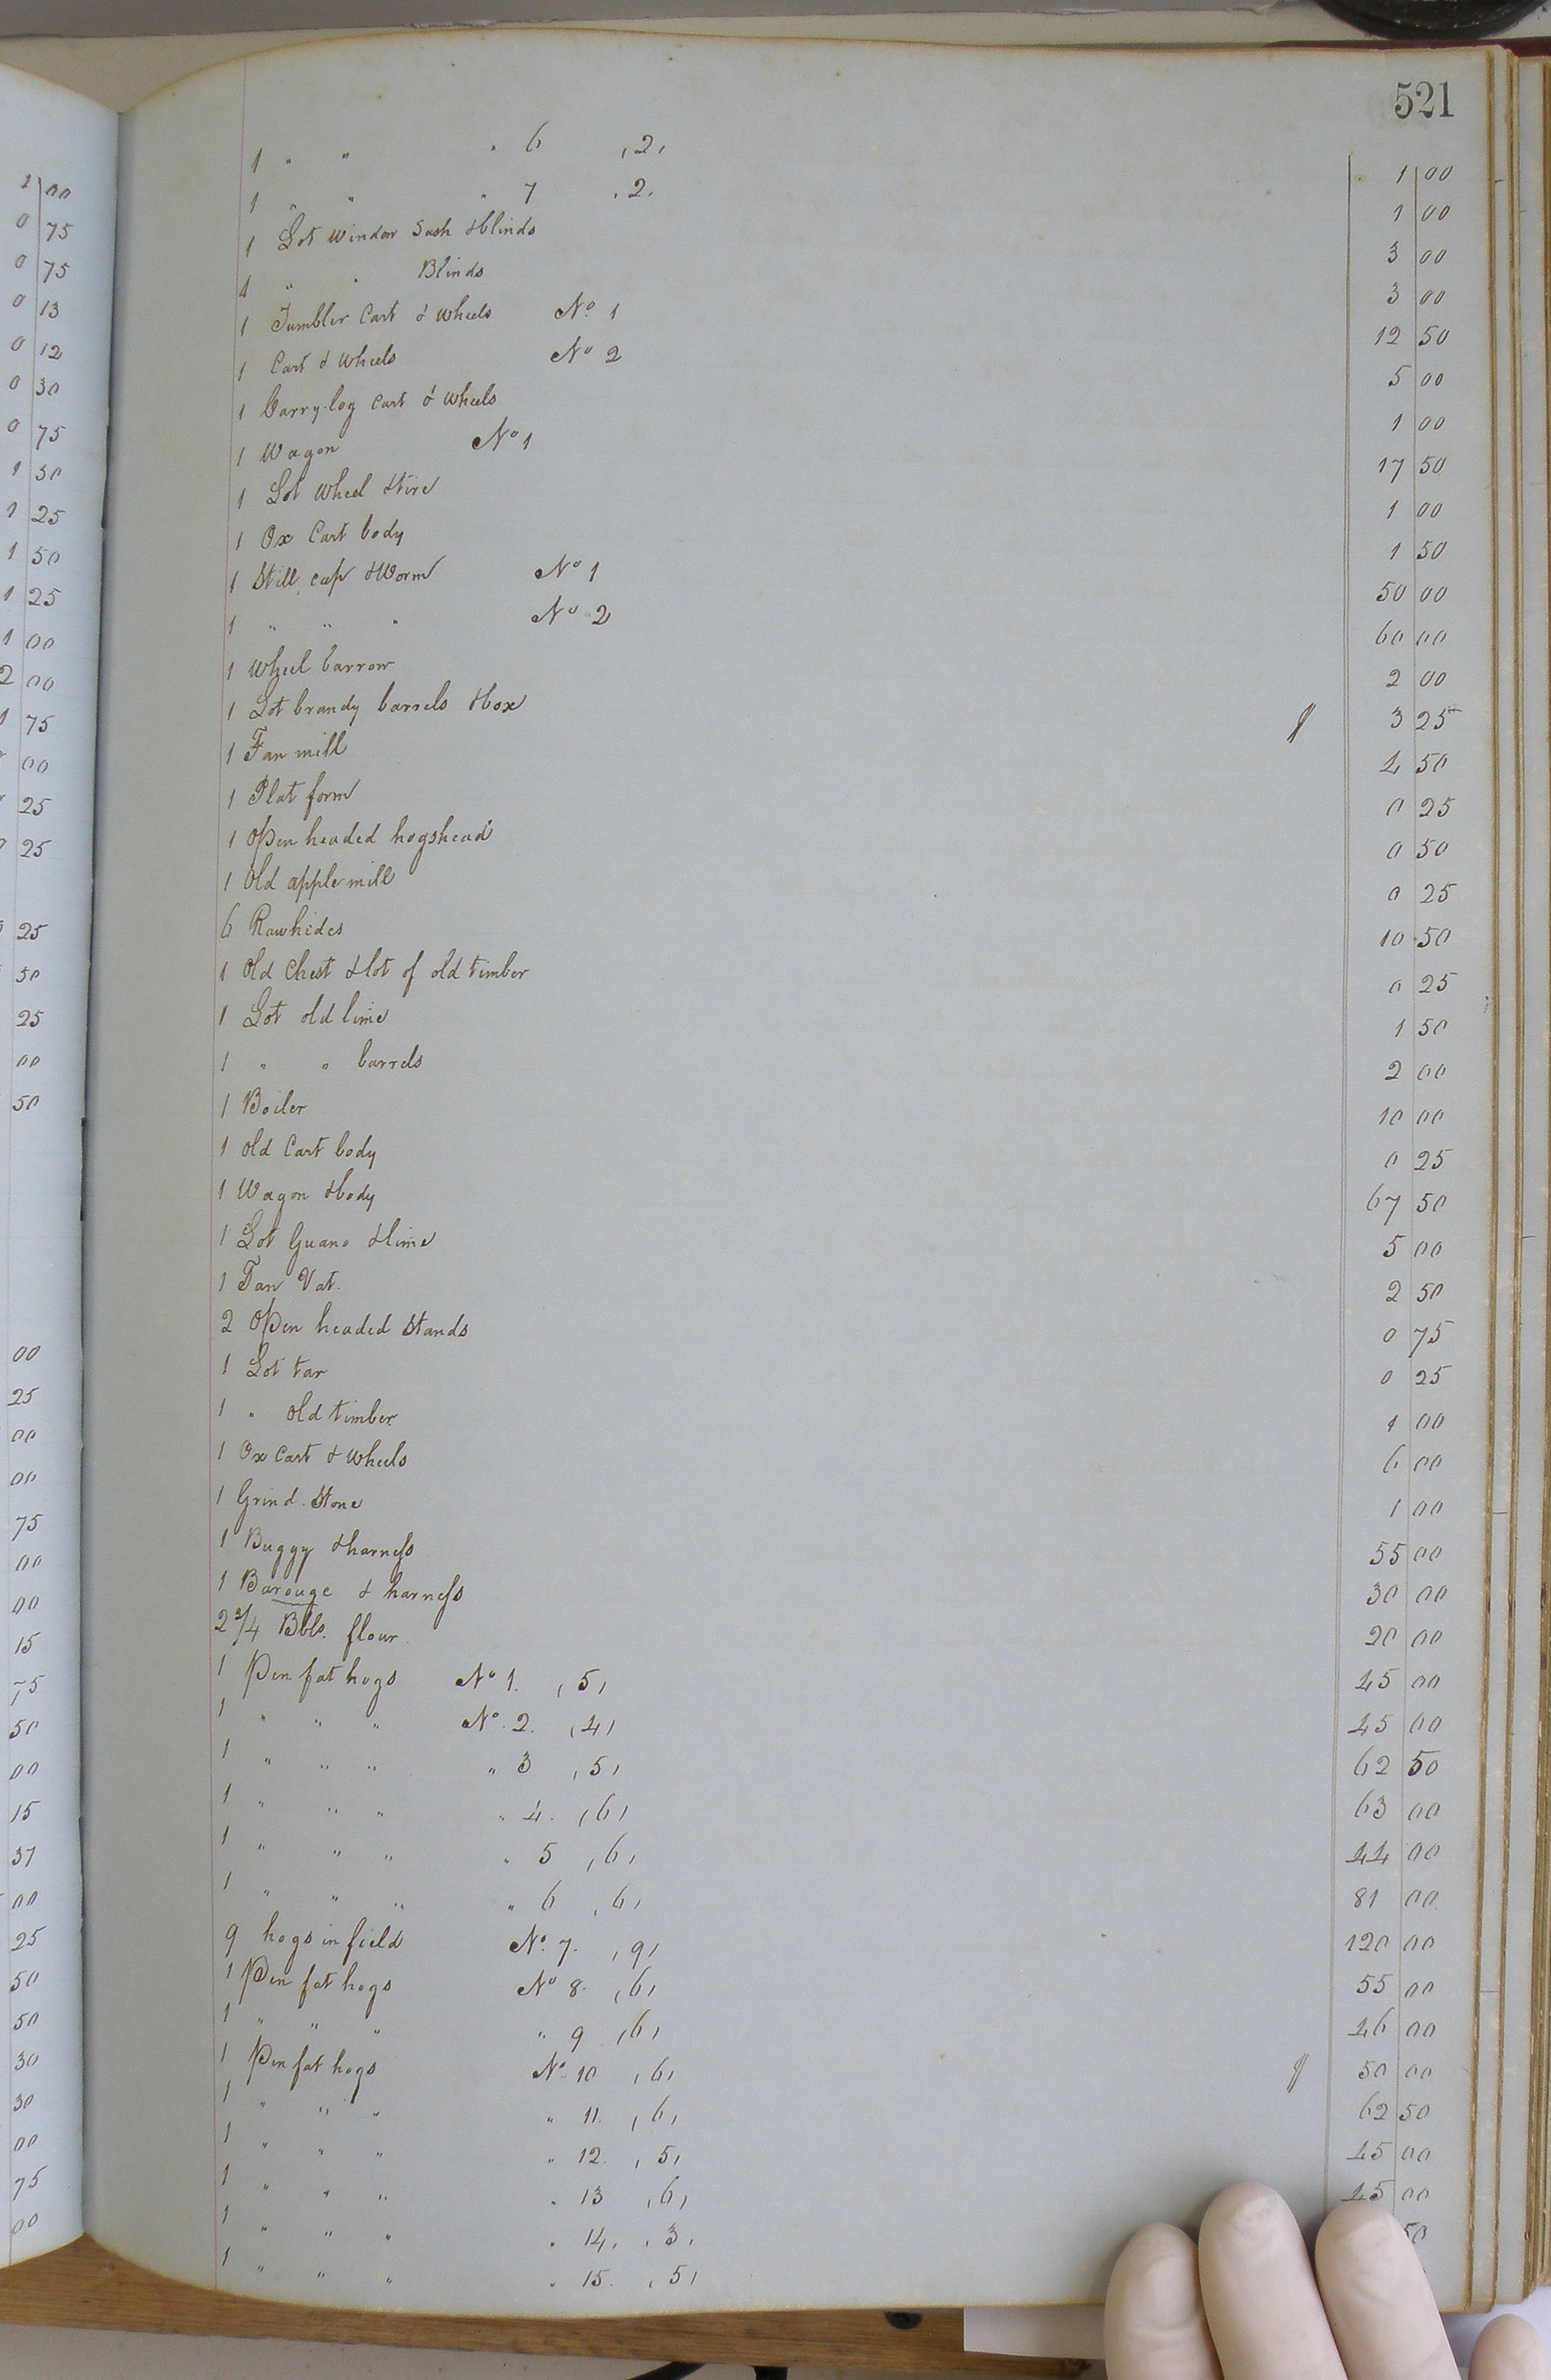 521
1 " " " 6 , 2 , 1 00
1 " " " 7 , 2 . 1 00
1 Lot Window Sash & blinds 3 00
1 " " Blinds 3 00
1 Tumbler Cart & Wheels No. 1 12 50
1 Cart & Wheels No 2 5 00
1 Carry-log Cart & Wheels 1 00
1 Wagon No 1 17 50
1 Lot Wheel & tire 1 00
1 Ox Cart body 1 50
1 Still, cap & Worm No 1 50 00
1 " " " No 2 60 00
1 Wheel barrow 2 00
1 Lot brandy barrels & box 3 25
1 Fan mill 4 50
1 Plat form 0 25
1 Open headed hogshead 0 50
1 Old apple mill 0 25
6 Rawhides 10 50
1 Old Chest & lot of old timber 0 25
1 Lot old lime 1 50
1 " " barrels 2 00
1 Boiler 10 00
1 Old Cart body 0 25
1 Wagon & body 67 50
1 Lot Guano & lime 5 00
1 Tan Vat. 2 50
2 Open headed Stands 0 75
1 Lot tar 0 25
1 " old timber 1 00
1 Ox Cart & Wheels 6 00
1 Grind. Stone 1 00
1 Buggy & harness 55 00
1 Barouge & harness 30 00
2 3/4 Bbls. flour 20 00
1 Pen fat hogs No 1. , 5 , 45 00
1 " " " No. 2. , 4 , 45 00
1 " " " " 3 , 5 , 62 50
1 " " " " 4. , 6 , 63 00
1 " " " " 5 , 6 , 44 00
1 " " " " 6 , 6 , 81 00
9 hogs in field No. 7. , 9 , 120 00
1 Pen fat hogs No 8. , 6 , 55 00
1 " " " " 9 , 6 , 46 00
1 Pen fat hogs No. 10 , 6 , 50 00
1 " " " " 11. , 6 , 62 50
1 " " " " 12. , 5 , 45 00
1 " " " " 13 , 6 , 45 00
1 " " " " 14, , 3 , 50
1 " " " " 15. , 5 ,